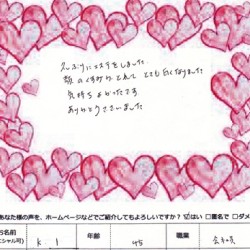 久しぶりにエステをしました。
顔のくすみがとれて とても白くなりました。
気持ちよかったです
ありがとうございました
あなた様の声を、ホームページなどでご紹介してもよろしいですか? はい □匿名で □ダメ
お名前
ニシャル可)
K I
年齢
45
職業
会社員